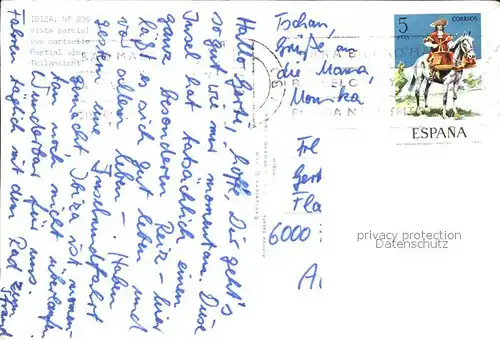 IBIZA. Nº 339
Vista parcial
Vue partielle
Partial view
Teilansicht
Hallo Gerti, hoffe, Dir geht's
so gut wie mir momentan. Diese
Insel hat tatsächlich einen
ganz besonderen Reiz – hier
läßt es sich gut leben und
vor allem lieben – Haben
gestern eine Inselrundfahrt
gemacht. Ibiza ist momen-
tan noch nicht überlaufen.
Wunderbar für uns.
Fahren täglich mit dem Rad zum Strand
Tschau,
Grüße an
die Mama,
Monika
5
PTAS
CORREOS
ESPAÑA
Frl
Gert
Fla
6000
A
privacy protection
Datenschutz